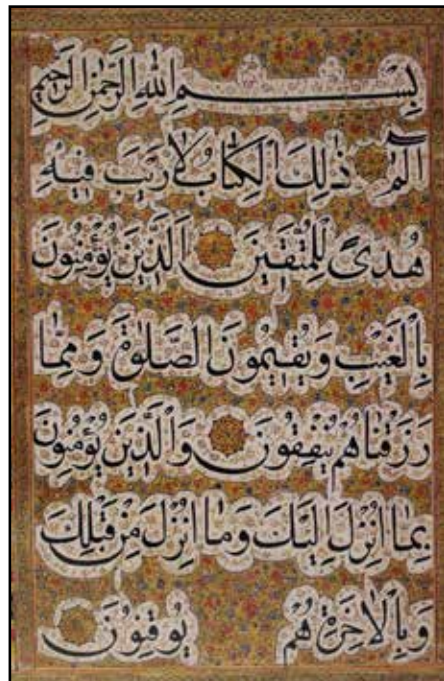 بِسْمِ اللهِ الرَّحْمٰنِ الرَّحِيمِ
الٓمٓ ذٰلِكَ الْكِتَابُ لَا رَيْبَ فِيهِ
هُدًى لِلْمُتَّقِينَ الَّذِينَ يُؤْمِنُونَ
بِالْغَيْبِ وَيُقِيمُونَ الصَّلٰوةَ وَمِمَّا
رَزَقْنَاهُمْ يُنْفِقُونَ وَالَّذِينَ يُؤْمِنُونَ
بِمَا أُنْزِلَ إِلَيْكَ وَمَا أُنْزِلَ مِنْ قَبْلِكَ
وَبِالْاٰخِرَةِ هُمْ يُوقِنُونَ